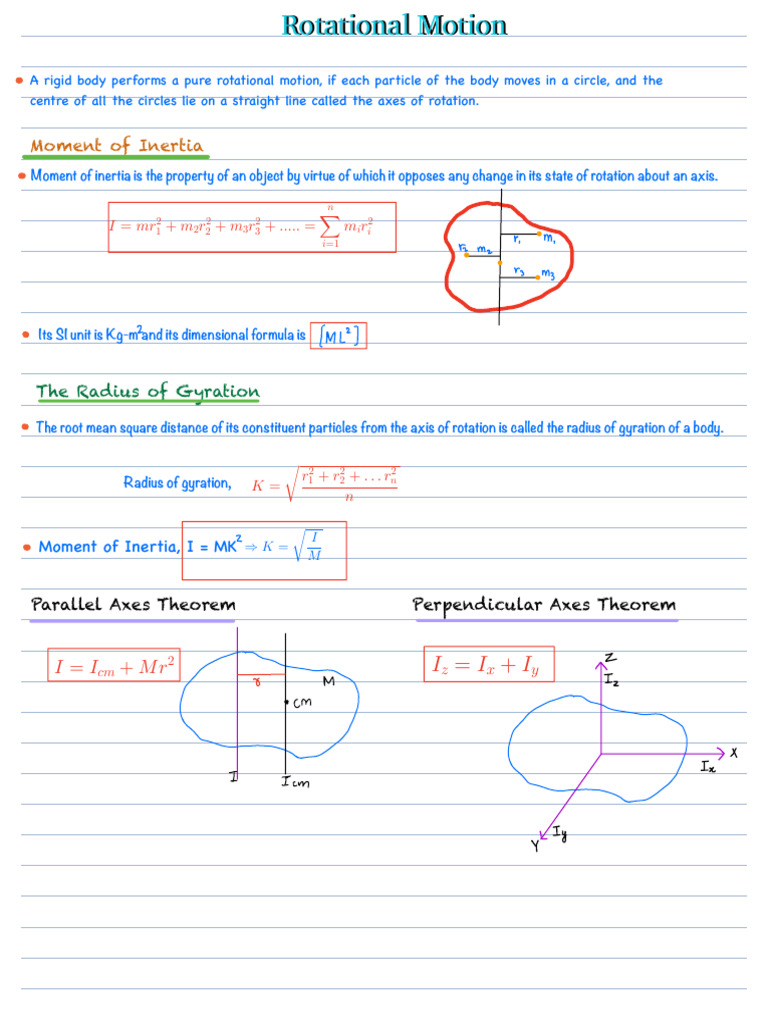 Rotational Motion
• A rigid body performs a pure rotational motion, if each particle of the body moves in a circle, and the
centre of all the circles lie on a straight line called the axes of rotation.
Moment of Inertia
• Moment of inertia is the property of an object by virtue of which it opposes any change in its state of rotation about an axis.
I = mr₁² + m₂r₂² + m₃r₃² + ..... = ∑ᵢ₌₁ⁿ mᵢrᵢ²
r₁ m₁
r₂ m₂
r₃ m₃
• Its SI unit is Kg-m² and its dimensional formula is [ML²]
The Radius of Gyration
• The root mean square distance of its constituent particles from the axis of rotation is called the radius of gyration of a body.
Radius of gyration, K = √((r₁² + r₂² + ... rₙ²)/n)
• Moment of Inertia, I = MK² ⇒ K = √(I/M)
Parallel Axes Theorem
I = I_cm + Mr²
r
M
cm
I
I cm
Perpendicular Axes Theorem
I_z = I_x + I_y
Z
I_z
X
I_x
I_y
Y